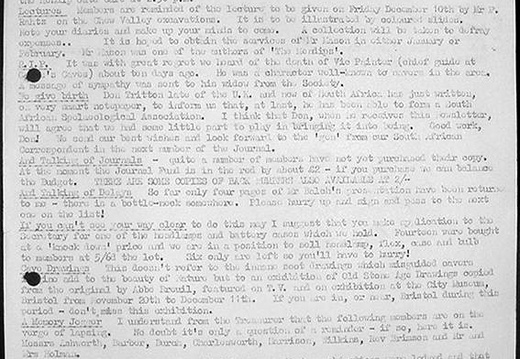 Lectures   Members are reminded of the lecture to be given on Friday December 10th by Mr P.
Rahtz on the Chew Valley excavations.  It is to be illustrated by coloured slides.
Note your diaries and make up your minds to come.  A collection will be taken to defray
expenses..  It is hoped to obtain the services of Mr Mason in either January or
February.  Mr Mason was one of the authors of 'The Mendips'.
R.I.F.  It was with great regret we heard of the death of Vic Painter (chief guide at
Caves) about ten days ago.  He was a character well-known to cavers in the area.
A message of sympathy was sent to his widow from the Society.
To give birth  Don Britten late of the U.K. and now of South Africa has just written,
on very smart notepaper, to inform us that, at last, he has been able to form a South
African Speleological Association.  I think that Don, when he receives this newsletter,
will agree that we had some little part to play in bringing it into being.  Good work,
Don!  We send our best wishes and look forward to the 'gen' from our South African
Correspondent in the next number of the Journal.
And Talking of Journals  -  quite a number of members have not yet purchased their copy.
At the moment the Journal Fund is in the red by about £2 - if you purchase we can balance
the Budget.  THERE ARE SOME COPIES OF BACK NUMBERS ALSO AVAILABLE AT 2/-
And Talking of Balch  So far only four pages of Mr Balch's presentation have been returned
to me - there is a bottle-neck somewhere.  Please hurry up and sign and pass to the next
one on the list!
If you can't see your way clear to do this may I suggest that you make application to the
Secretary for one of the headlamps and battery cases which we hold.  Fourteen were bought
at a 'knock down' price and we are in a position to sell headlamp, flex, case and bulb
to members at 5/6d the lot.  Six only are left so you'll have to hurry!
Cave Drawings  This doesn't refer to the insane soot drawings which misguided cavers
add to the beauty of Nature but to an exhibition of Old Stone Age Drawings copied
from the original by Abbe Breuil, featured on T.V. and on exhibition at the City Museum,
Bristol from November 20th to December 11th.  If you are in, or near, Bristol during this
period - don't miss this exhibition.
A Memory Jogger  I understand from the Treasurer that the following members are on the
verge of lapsing.  No doubt it's only a question of a reminder - if so, here it is.
Messrs Ashworth, Barber, Durch, Charlesworth, Harrison, Wilkins, Rev Brimson and Mr and
Mrs Holman.